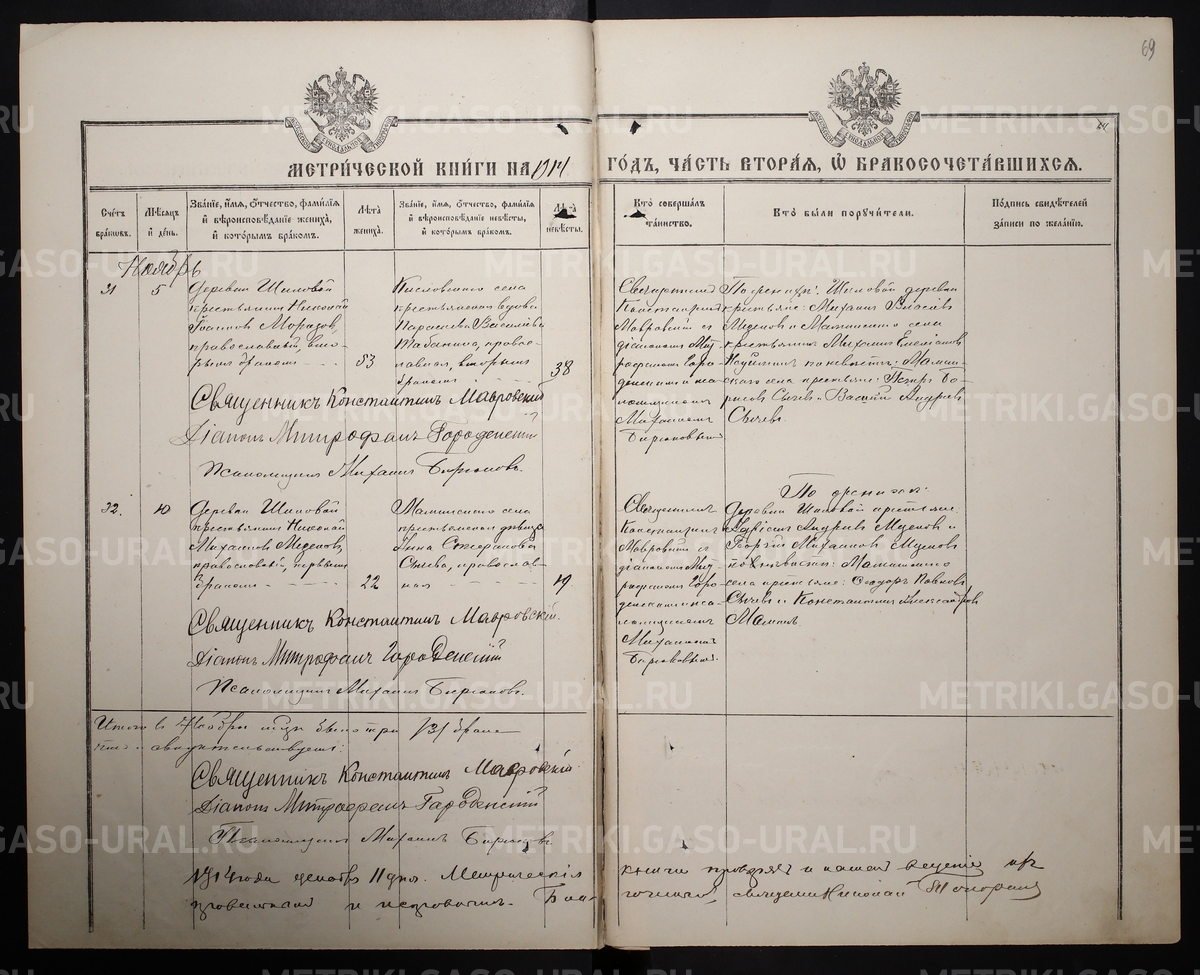 69
МЕТРИЧЕСКОЙ КНИГИ НА 1914 ГОДЪ, ЧАСТЬ ВТОРАЯ, Ѡ БРАКОСОЧЕТАВШИХСЯ.
Счётъ браковъ.
Мѣсяцъ и день.
Званіе, имя, отчество, фамилія и вѣроисповѣданіе жениха, и которымъ бракомъ.
Лѣта жениха.
Званіе, имя, отчество, фамилія и вѣроисповѣданіе невѣсты, и которымъ бракомъ.
невѣсты.
Кто совершалъ таинство.
Кто были поручители.
Подпись свидѣтелей записи по желанію.
Ноябрь
31
5
Деревни Шиловой
крестьянинъ Николай
Іоанновъ Морозов,
православный, вто-
рымъ бракомъ
53
Кисловского села
крестьянская вдова
Параскева Васильева
Табанина, правос-
лавная, вторымъ
бракомъ
38
Священникъ
Константинъ
Мавровскій съ
діакономъ Мит-
рофаномъ Горо-
денскимъ и пса-
ломщикомъ
Михаиломъ
Бирюковымъ
По женихѣ: Шиловой деревни
крестьяне: Михаилъ
и Маминского села
крестьянинъ Михаилъ
по невѣстѣ: Мамин-
ского села крестьяне: Петръ Бо-
рисовъ Сычевъ и Василій Андреевъ
Сычевъ.
Священникъ Константинъ Мавровскій
Діаконъ Митрофанъ Городенскій
Псаломщикъ Михаилъ Бирюковъ.
32.
10
Деревни Шиловой
крестьянинъ Николай
Михаиловъ
православный, первымъ
бракомъ
22
Маминского села
крестьянская дѣвица
Анна Стефанова
Сычева, православ-
ная
19
Священникъ
Константинъ
Мавровскій съ
діакономъ Мит-
рофаномъ Горо-
денскимъ и пса-
ломщикомъ
Михаиломъ
Бирюковымъ.
По женихѣ:
Деревни Шиловой крестьяне:
Андреевъ и
Георгій Михаиловъ
по невѣстѣ: Маминского
села крестьяне: Ѳеодоръ Павловъ
Сычевъ и Константинъ Александровъ
Маминъ.
Священникъ Константинъ Мавровскій.
Діаконъ Митрофанъ Городенскій
Псаломщикъ Михаилъ Бирюковъ.
Итого в Ноябрѣ мѣсяцѣ было три /3/ брака
что и свидѣтельствуемъ:
Священникъ Константинъ Мавровскій
Діаконъ Митрофанъ Городенскій
Псаломщикъ Михаилъ Бирюковъ
1914 года декабр 11 дня. Метрическія книги
Николай Топорковъ
METRIKI.GASO-URAL.RU